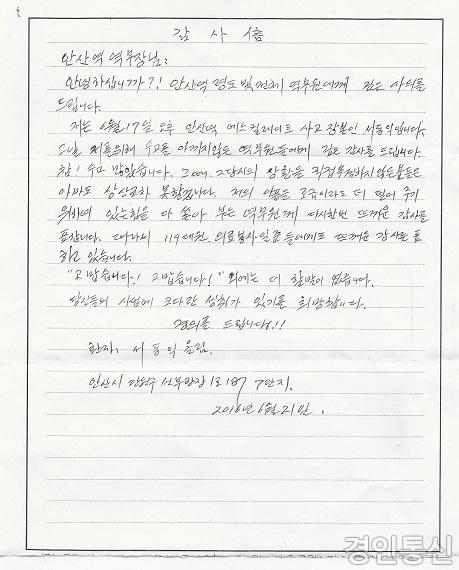 감 사 信
안산역 역무장님:
안녕하십니까?! 안산역 령도 및 전체 역무원에게 깊은 사의를
드립니다.
저는 6월17일 오후 안산역 에스컬레이트 사고 장본인 서동의입니다.
그날 저를 위해 수고를 아끼지않은 역무원들에게 깊은 감사를 드립니다.
참! 수고 많았습니다. 그 당시의 상황을 직접 목격하지 않은 분들은
아마도 상상조차 못할겁니다. 저의 아픔을 조금이라도 더 덜어 주기
위하여 있는 힘을 다 쏟아 부는 역무원께 다시한번 뜨거운 감사를
표합니다. 따라서 119대원, 의료봉사일꾼들에게도 뜨거운 감사를 표
하고 있습니다.
"고맙습니다! 고맙습니다!" 외에는 더 할말이 없습니다.
당신들의 사업에 크다란 성취가 있기를 희망합니다.
경의를 드립니다!!!
환자: 서동의 올림.
안산시 단원구 선부광장 1로 187 7단지.
2016년 6월 21일.
경인통신